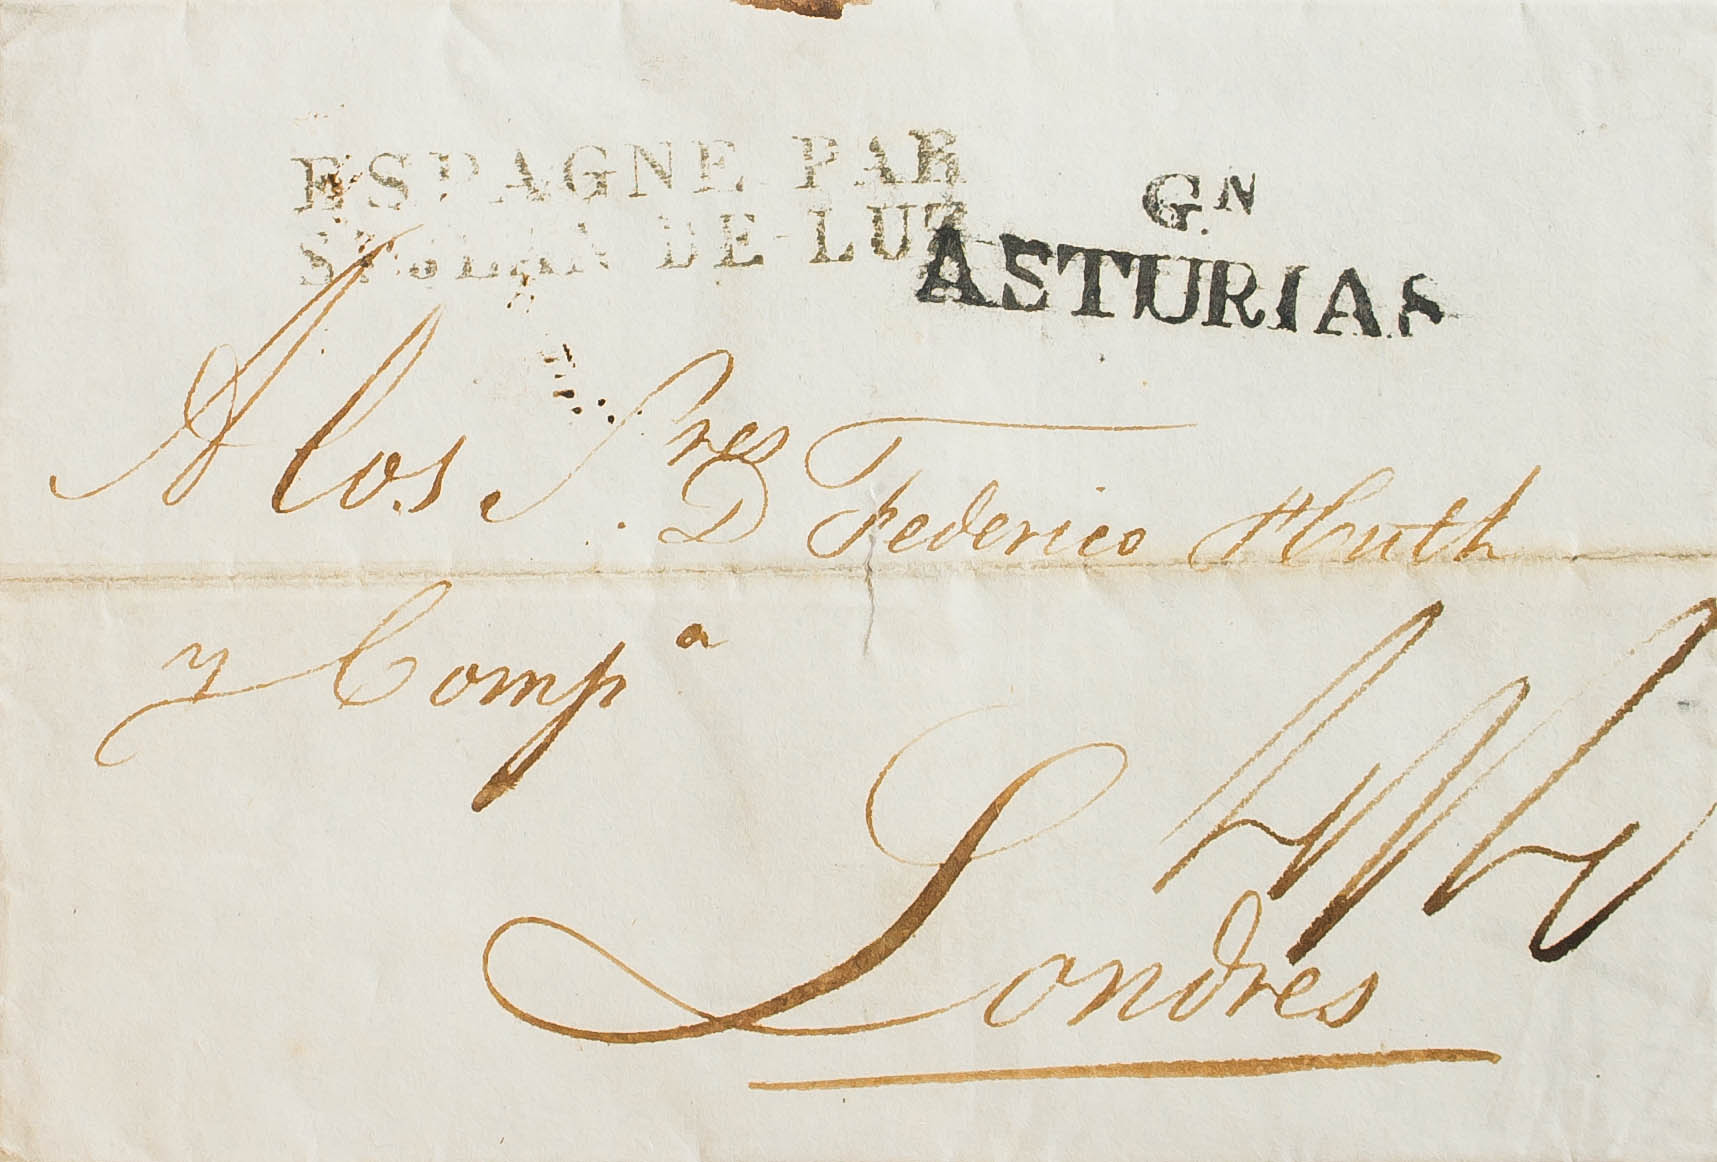 ESPAGNE PAR
ST. JEAN DE LUZ
G.N
ASTURIAS
A los Sres D Federico Huth
y Compa
Londres